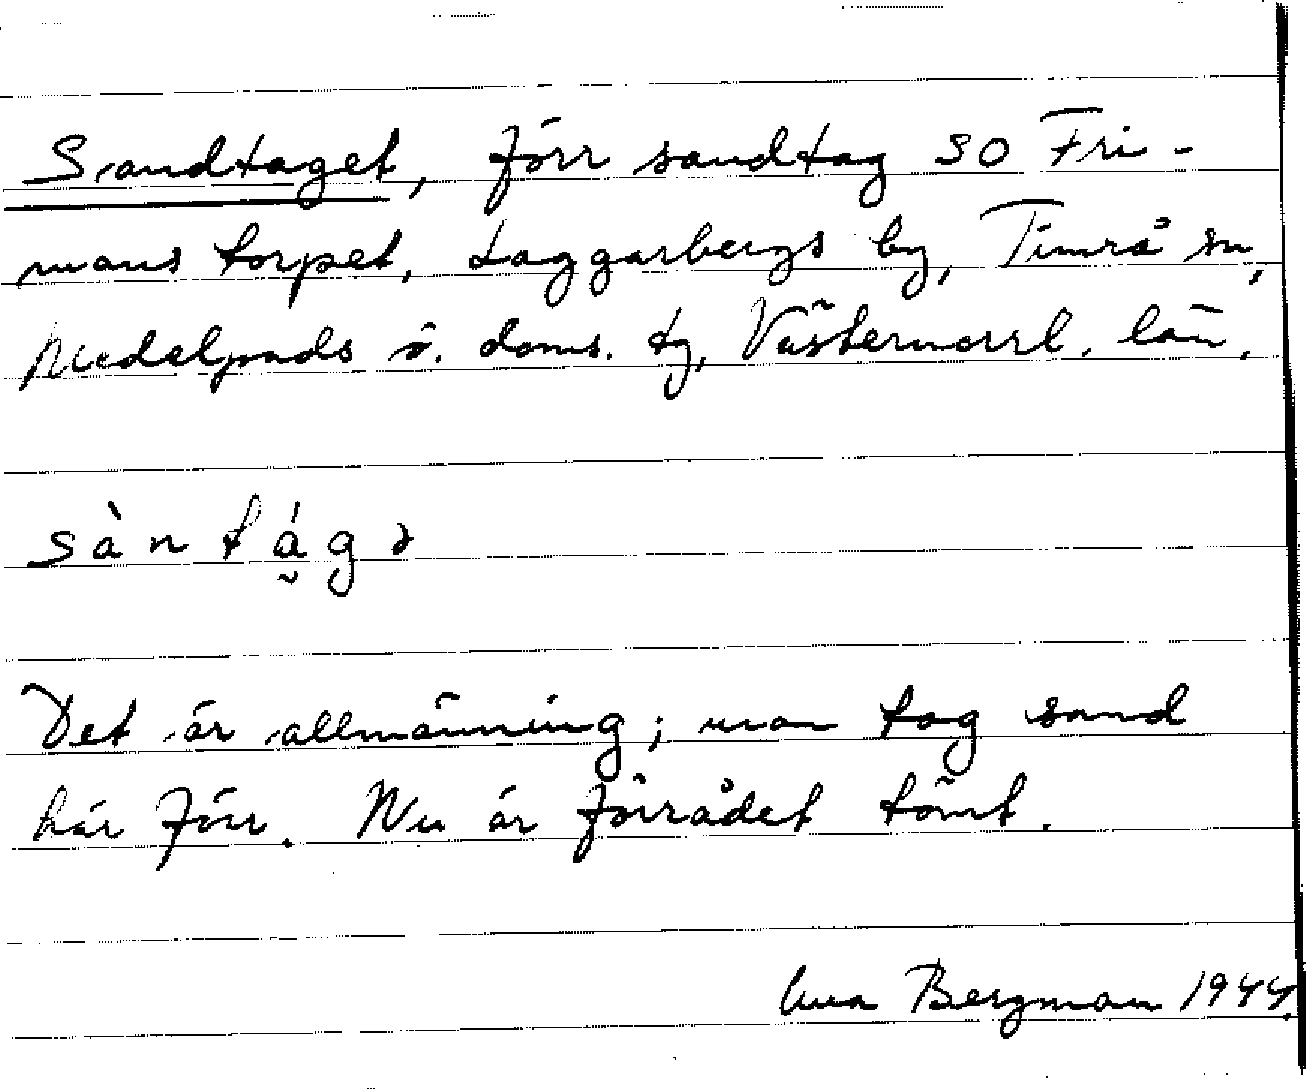 Sandtaget, förr sandtag SO Fri-
mans torpet, Laggarbergs by, Timrå sn,
Medelpads ö. doms. tg, Västernorrl. län.
sàn tá̰gə
Det är allmänning; man tog sand
här förr. Nu är förrådet tömt.
Bergman 1944.